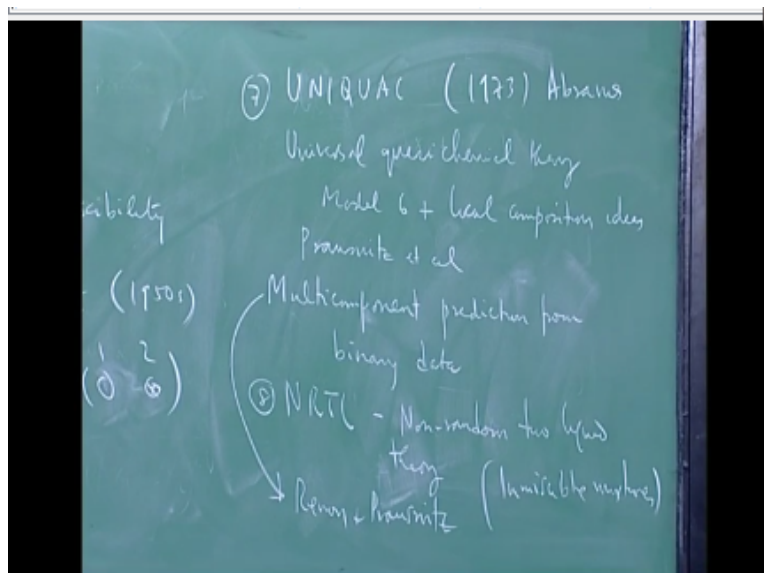 cibility
(1950s)
1 2
⑦ UNIQUAC (1973) Abrams
Universal quasichemical theory
Model 6 + local composition ideas
Prausnitz et al
Multicomponent prediction from
binary data
⑧ NRTL - Non-random two liquid
theory
Renon + Prausnitz (Immiscible mixtures)